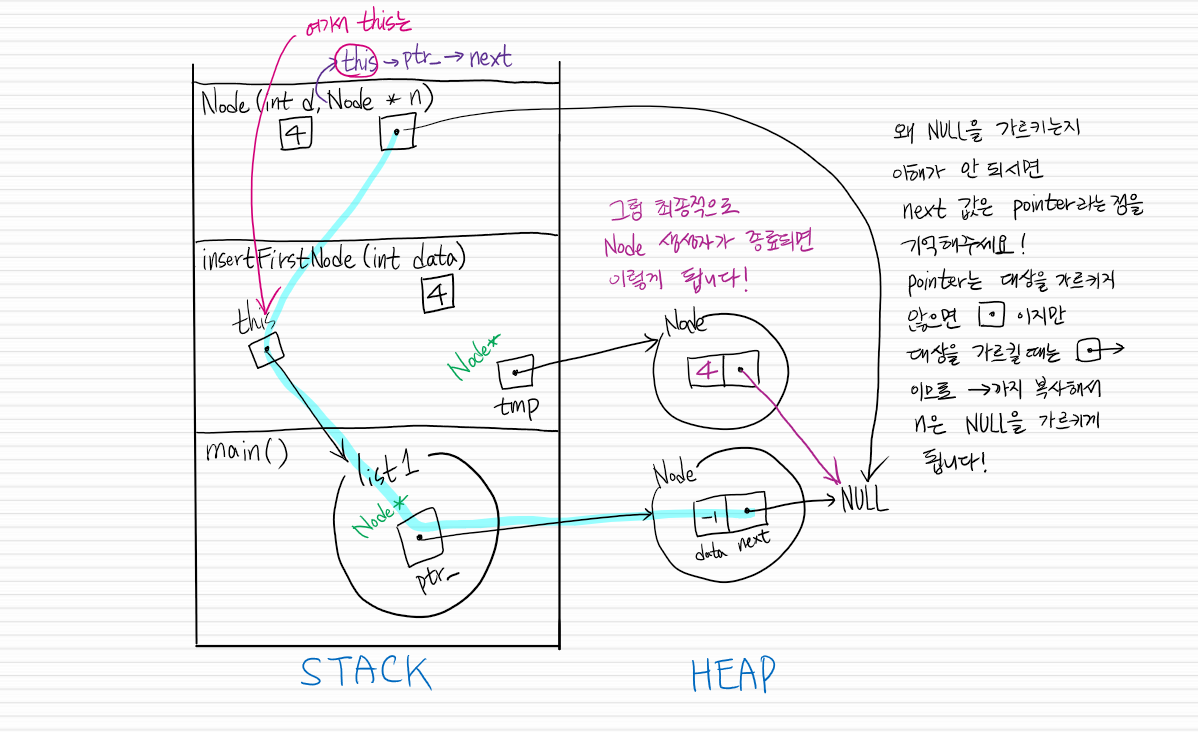 여기서 this는
this→ptr_→next
Node (int d, Node * n)
4
insertFirstNode (int data)
4
this
Node*
tmp
main()
list1
Node*
ptr_
STACK
그럼 최종적으로
Node 생성자가 종료되면
이렇게 됩니다!
Node
4
Node
-1
data next
NULL
HEAP
왜 NULL을 가르키는지
이해가 안 되시면
next 값은 pointer라는 점을
기억해주세요!
pointer는 대상을 가르키지
않으면 이지만
대상을 가르킬 때는
이므로 →까지 복사해서
n은 NULL을 가르키게
됩니다!